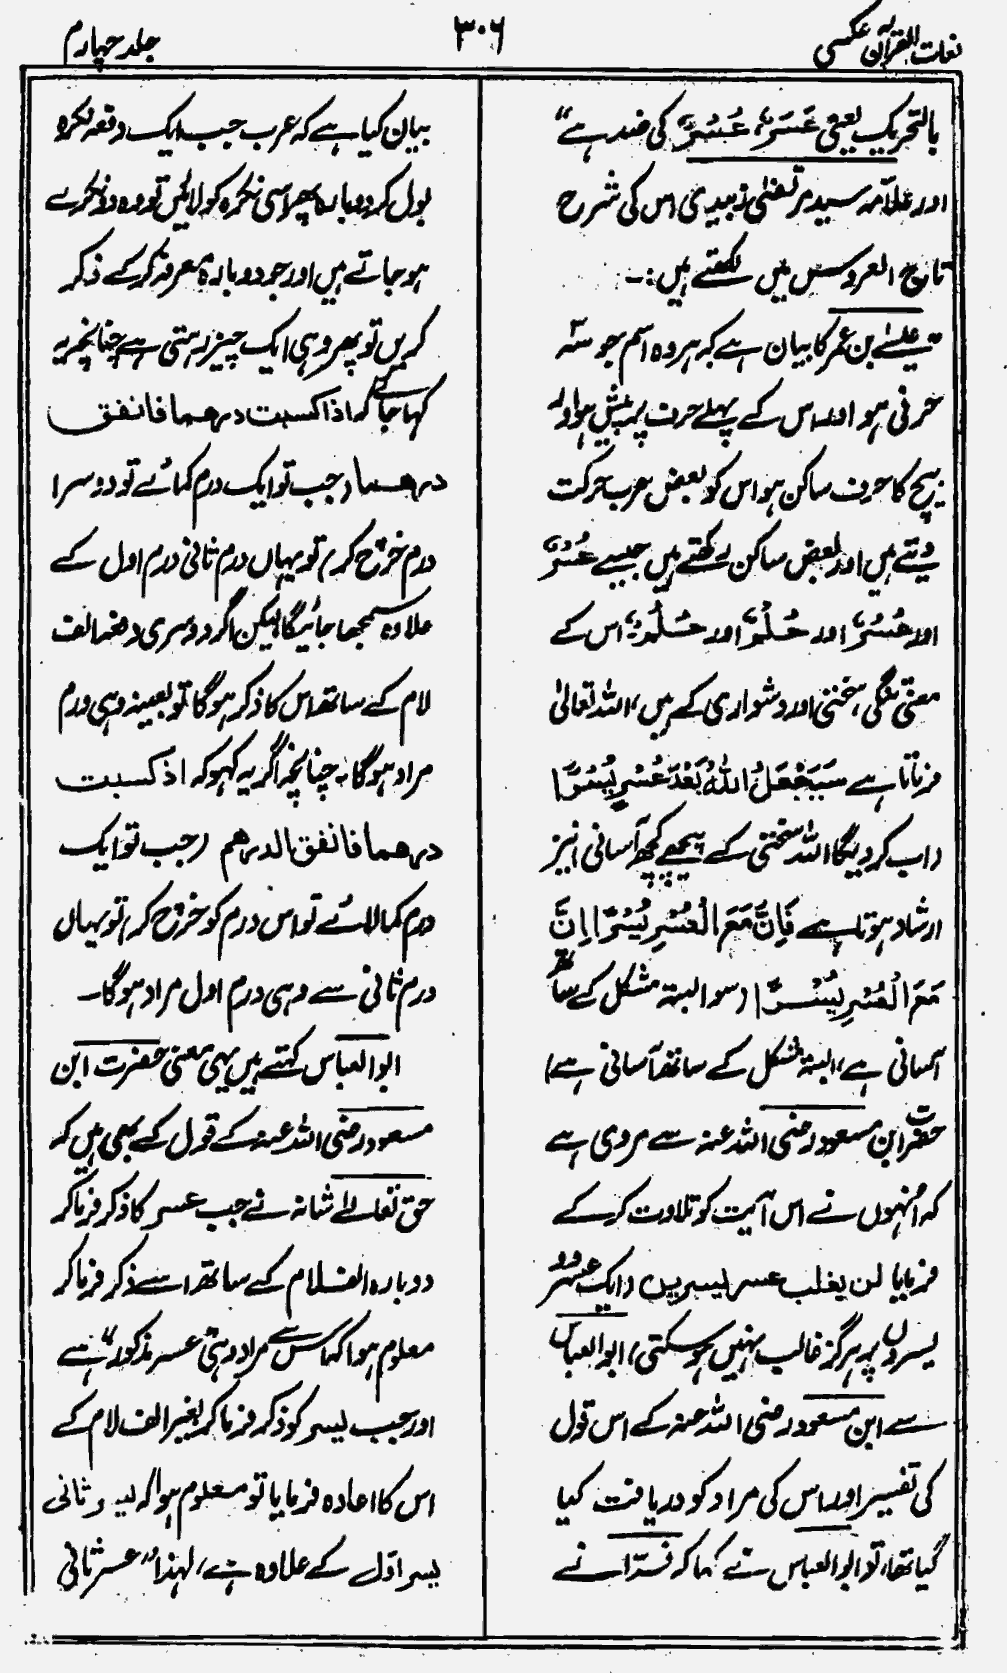 لغات القرآن عکسی
۳۰۶
جلد چہارم
بالتحریک یعنی عَسَرٌ، عُسُرٌ کی ضد ہے“
اور علامہ سید مرتضیٰ زبیدی اس کی شرح
تاج العروس میں لکھتے ہیں :۔
عیسٰے بن عمر کا بیان ہے کہ ہر وہ اسم جو سہ
حرفی ہو اور اس کے پہلے حرف پر پیش ہو اور
بیچ کا حرف ساکن ہو اس کو بعض عرب حرکت
دیتے ہیں اور بعض ساکن رکھتے ہیں جیسے عُسْرٌ
اور عُسُرٌ اور حُلْمٌ اور حُلُمٌ، اس کے
معنی تنگی، سختی اور دشواری کے ہیں، اللہ تعالیٰ
فرماتا ہے سَیَجْعَلُ اللّٰہُ بَعْدَ عُسْرٍ یُّسْرًا
(اب کر دیگا اللہ سختی کے پیچھے کچھ آسانی) نیز
ارشاد ہوتا ہے فَاِنَّ مَعَ الْعُسْرِ یُسْرًا اِنَّ
مَعَ الْعُسْرِ یُسْرًا (سو البتہ مشکل کے ساتھ
آسانی ہے، البتہ مشکل کے ساتھ آسانی ہے)
حضرت ابن مسعود رضی اللہ عنہ سے مروی ہے
کہ اُنہوں نے اس آیت کو تلاوت کر کے
فرمایا لن یغلب عسر یسرین (ایک عسر دو
یسروں پر ہرگز غالب نہیں ہو سکتی) ابو العباس
سے ابن مسعود رضی اللہ عنہ کے اس قول
کی تفسیر اور اس کی مراد کو دریافت کیا
گیا تھا، تو ابو العباس نے کہا کہ فرّاء نے
بیان کیا ہے کہ عرب جب ایک دفعہ نکرہ
بول کر دوبارہ پھر اسی نکرہ کو لائیں تو وہ دو نکرے
ہو جاتے ہیں اور جو دوبارہ معرفہ کر کے ذکر
کریں تو پھر وہی ایک چیز رہتی ہے چنانچہ یہ
کہا جائے کہ اذا کسبت درھما فانفق
درھما (جب تو ایک درم کمائے تو دوسرا
درم خرچ کر) تو یہاں درم ثانی درم اول کے
علاوہ سمجھا جائیگا لیکن اگر دوسری دفعہ الف
لام کے ساتھ اس کا ذکر ہوگا تو بعینہ وہی درم
مراد ہوگا۔ چنانچہ اگر یہ کہو کہ اذ کسبت
درھما فانفق الدرھم (جب تو ایک
درم کما لائے تو اس درم کو خرچ کر) تو یہاں
درم ثانی سے وہی درم اول مراد ہوگا۔
ابو العباس کہتے ہیں یہی معنی حضرت ابن
مسعود رضی اللہ عنہ کے قول کے بھی ہیں کہ
حق تعالےٰ شانہ نے جب عسر کا ذکر فرما کر
دوبارہ الف لام کے ساتھ اسے ذکر فرما کر
معلوم ہوا کہ اس سے مراد وہی ”عسر مذکور“ ہے
اور جب یسر کو ذکر فرما کر بغیر الف لام کے
اس کا اعادہ فرمایا تو معلوم ہوا کہ یسر ثانی
یسر اول کے علاوہ ہے، لہذا ”عسر ثانی